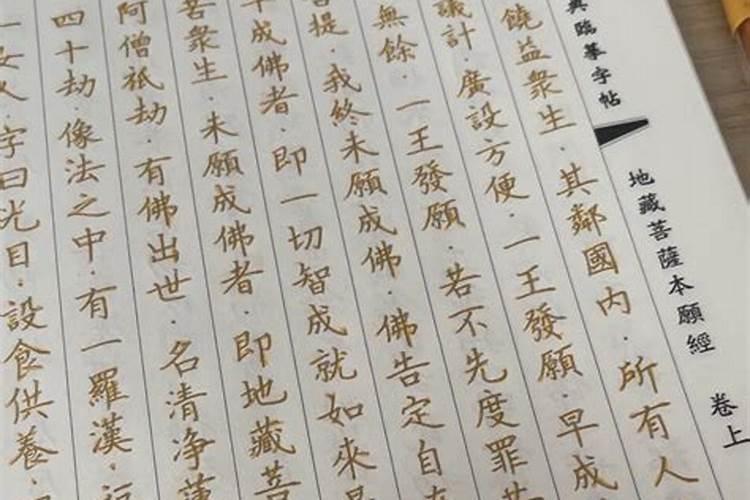 典臨摹字帖
地藏菩薩本願經 卷上
饒益衆生·其鄰國內·所有人
議計·廣設方便·一王發願·早成
無餘·一王發願·若不先度罪苦
提·我終未願成佛·佛告定自在
早成佛者·即一切智成就如來是
苦衆生·未願成佛者·即地藏菩
阿僧祇劫·有佛出世·名清净蓮
四十劫·像法之中·有一羅漢·福
一女人·字曰光目·設食供養·